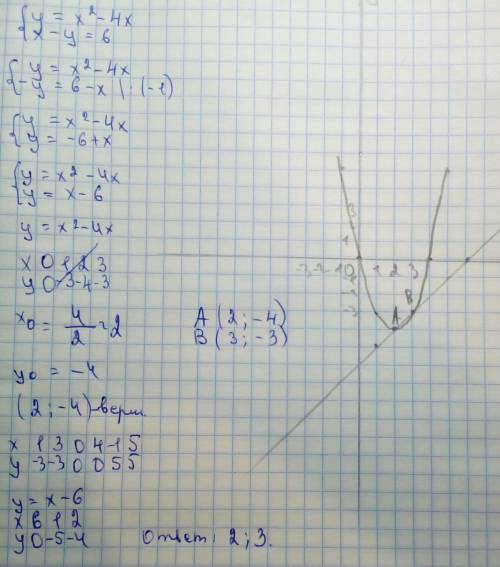 { y = x² - 4x
{ x - y = 6
{ y = x² - 4x
{ -y = 6 - x | : (-1)
{ y = x² - 4x
{ y = -6 + x
{ y = x² - 4x
{ y = x - 6
y = x² - 4x
x 0 1 2 3
y 0 -3 -4 -3
x₀ = 4/2 = 2
y₀ = -4
(2; -4) - верш.
x 1 3 0 4 -1 5
y -3 -3 0 0 5 5
y = x - 6
x 6 1 2
y 0 -5 -4
A (2; -4)
B (3; -3)
Ответ: 2; 3.
3
1
-3 -2 -1 0 1 2 3
A
B